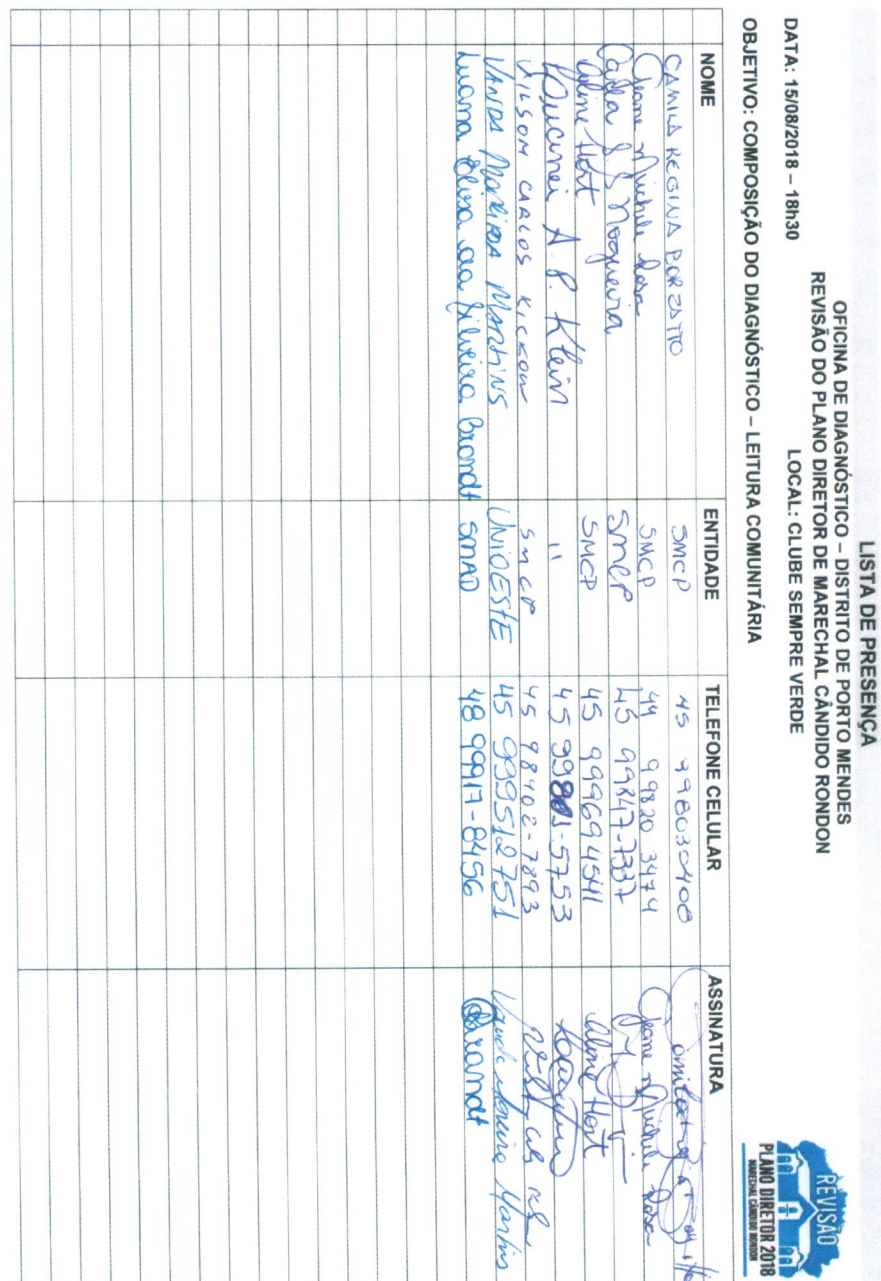 LISTA DE PRESENÇA
OFICINA DE DIAGNÓSTICO – DISTRITO DE PORTO MENDES
REVISÃO DO PLANO DIRETOR DE MARECHAL CÂNDIDO RONDON
LOCAL: CLUBE SEMPRE VERDE
DATA: 15/08/2018 – 18h30
OBJETIVO: COMPOSIÇÃO DO DIAGNÓSTICO – LEITURA COMUNITÁRIA
REVISÃO
PLANO DIRETOR 2018
MARECHAL CÂNDIDO RONDON
NOME ENTIDADE TELEFONE CELULAR ASSINATURA
CAMILA REGINA BORZATTO SMCP 45 998030408
Geane Michele Rosa SMCP 44 99820 3474 Geane Michele Rosa
Carla S. S. Nogueira SMCP 45 99847-7337
Aline Hort SMCP 45 999694541 Aline Hort
Lucinei A. P. Klein " 45 99801-5753
VILSOM CARLOS KICKOW SMCP 45 98402-7893
VANDA MOREIRA MARTINS UNIOESTE 45 999512751 Vanda Moreira Martins
Luana Elisa da Silveira Brandt SMAD 48 99917-8456 Brandt